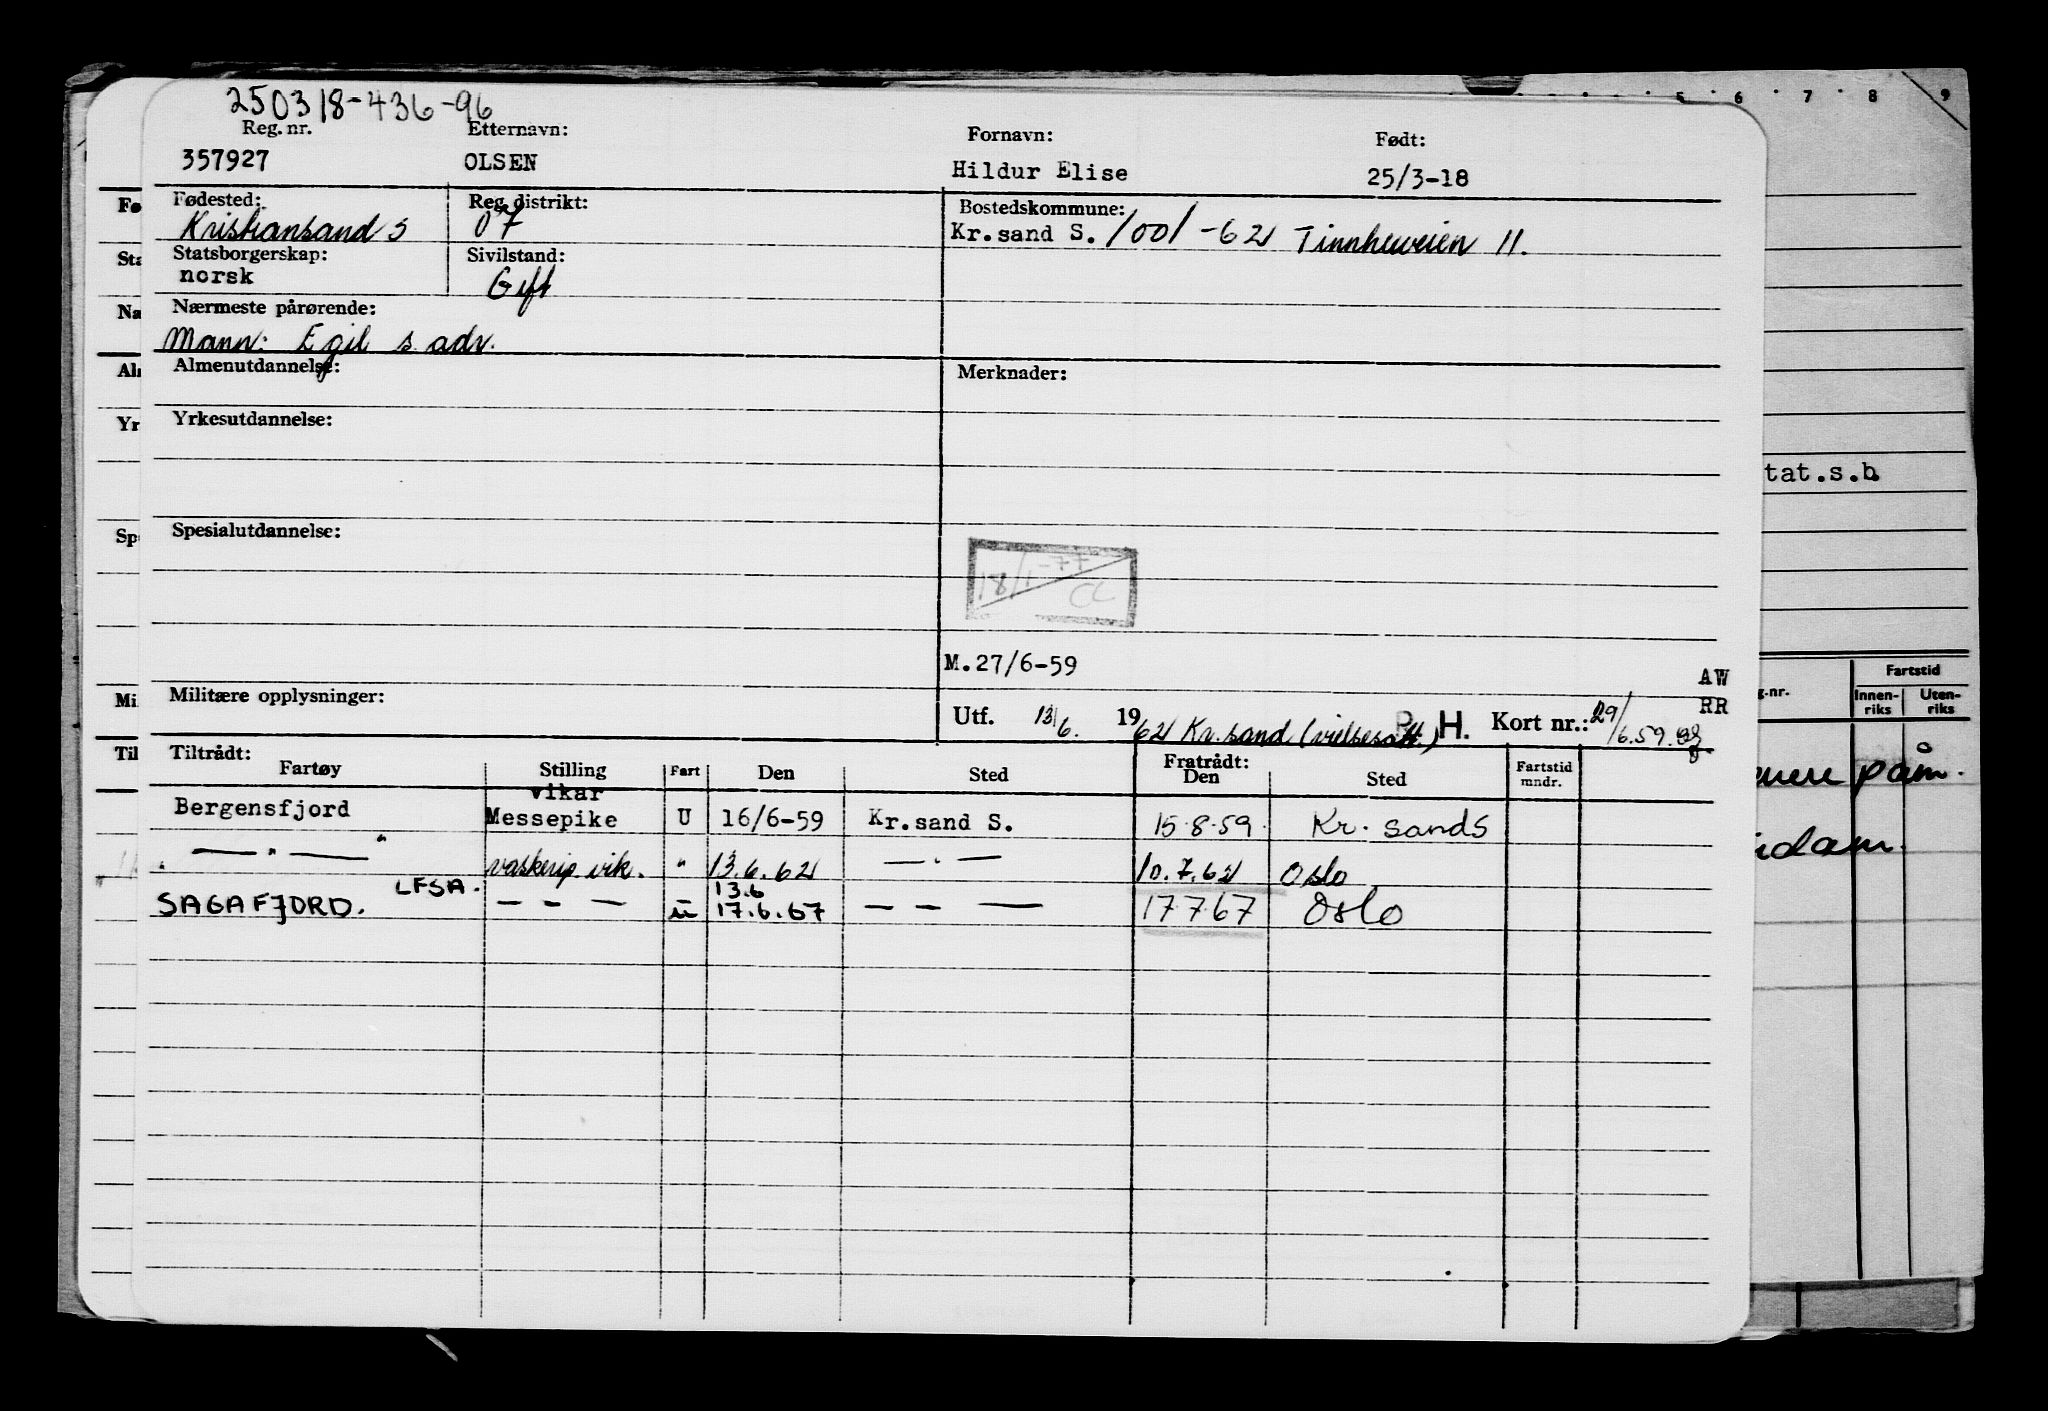 250318-436-96
Reg. nr. Etternavn: Fornavn: Født:
357927 OLSEN Hildur Elise 25/3-18
Fødested: Reg. distrikt: Bostedskommune:
Kristiansand S 07 Kr.sand S. 1001-62 Tinnheiveien 11.
Statsborgerskap: Sivilstand:
norsk Gift
Nærmeste pårørende:
Mann: Egil s. adr.
Almenutdannelse: Merknader:
Yrkesutdannelse:
Spesialutdannelse:
18/1-77
CC
M.27/6-59 AW
RR
Militære opplysninger: Utf. 13/6. 1962 Kr.sand (vielsesatt.) H. Kort nr.: 29/6.59.
Tiltrådt: Fratrådt:
Fartøy Stilling Fart Den Sted Den Sted Fartstid mndr.
Bergensfjord vikar Messepike U 16/6-59 Kr.sand S. 15.8.59. Kr. sand S
" — " — " vaskerip. vik. " 13.6.62 — " — 10.7.62 Oslo
LFSA. 13.6
SAGAFJORD. — — — u 17.6.67 — — — 17767 Oslo
5 6 7 8 9
tat.s.b
g.nr. Fartstid
Innen-riks Uten-riks
påm.
idam.
Fø
Sta
Na
Al
Yr
Sp
Mi
Til